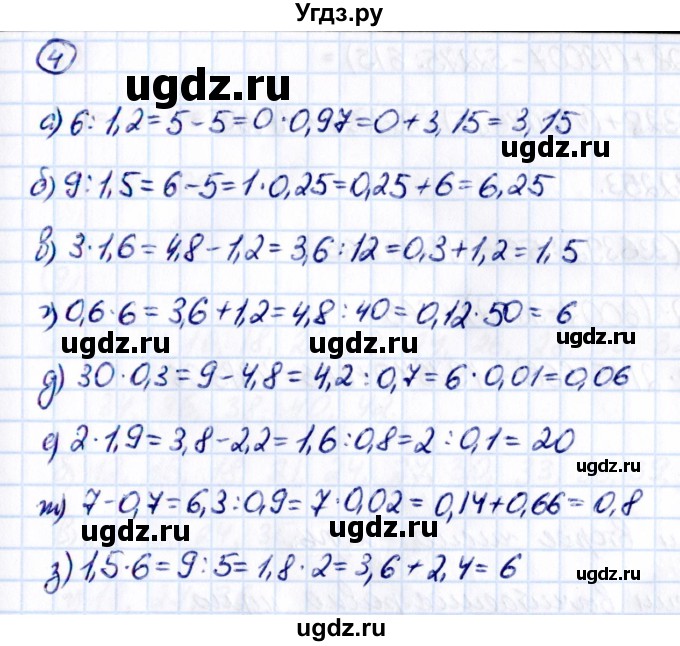 Угдз.ру
4
ugdz.ru
а) 6 : 1,2 = 5 - 5 = 0 · 0,97 = 0 + 3,15 = 3,15
ugdz.ru
б) 9 : 1,5 = 6 - 5 = 1 · 0,25 = 0,25 + 6 = 6,25
ugdz.ru
в) 3 · 1,6 = 4,8 - 1,2 = 3,6 : 12 = 0,3 + 1,2 = 1,5
г) 0,6 · 6 = 3,6 + 1,2 = 4,8 : 40 = 0,12 · 50 = 6
ugdz.ru ugdz.ru ugdz.ru
д) 30 · 0,3 = 9 - 4,8 = 4,2 : 0,7 = 6 · 0,01 = 0,06
е) 2 · 1,9 = 3,8 - 2,2 = 1,6 : 0,8 = 2 : 0,1 = 20
ugdz.ru
ж) 7 - 0,7 = 6,3 : 0,9 = 7 · 0,02 = 0,14 + 0,66 = 0,8
ugdz.ru ugdz.ru
з) 1,5 · 6 = 9 : 5 = 1,8 · 2 = 3,6 + 2,4 = 6
ugdz.ru
ugdz.ru